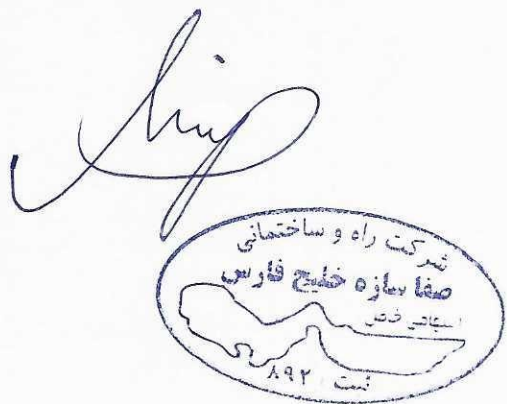 شرکت راه و ساختمانی
صفا سازه خلیج فارس
ثبت ۸۹۲